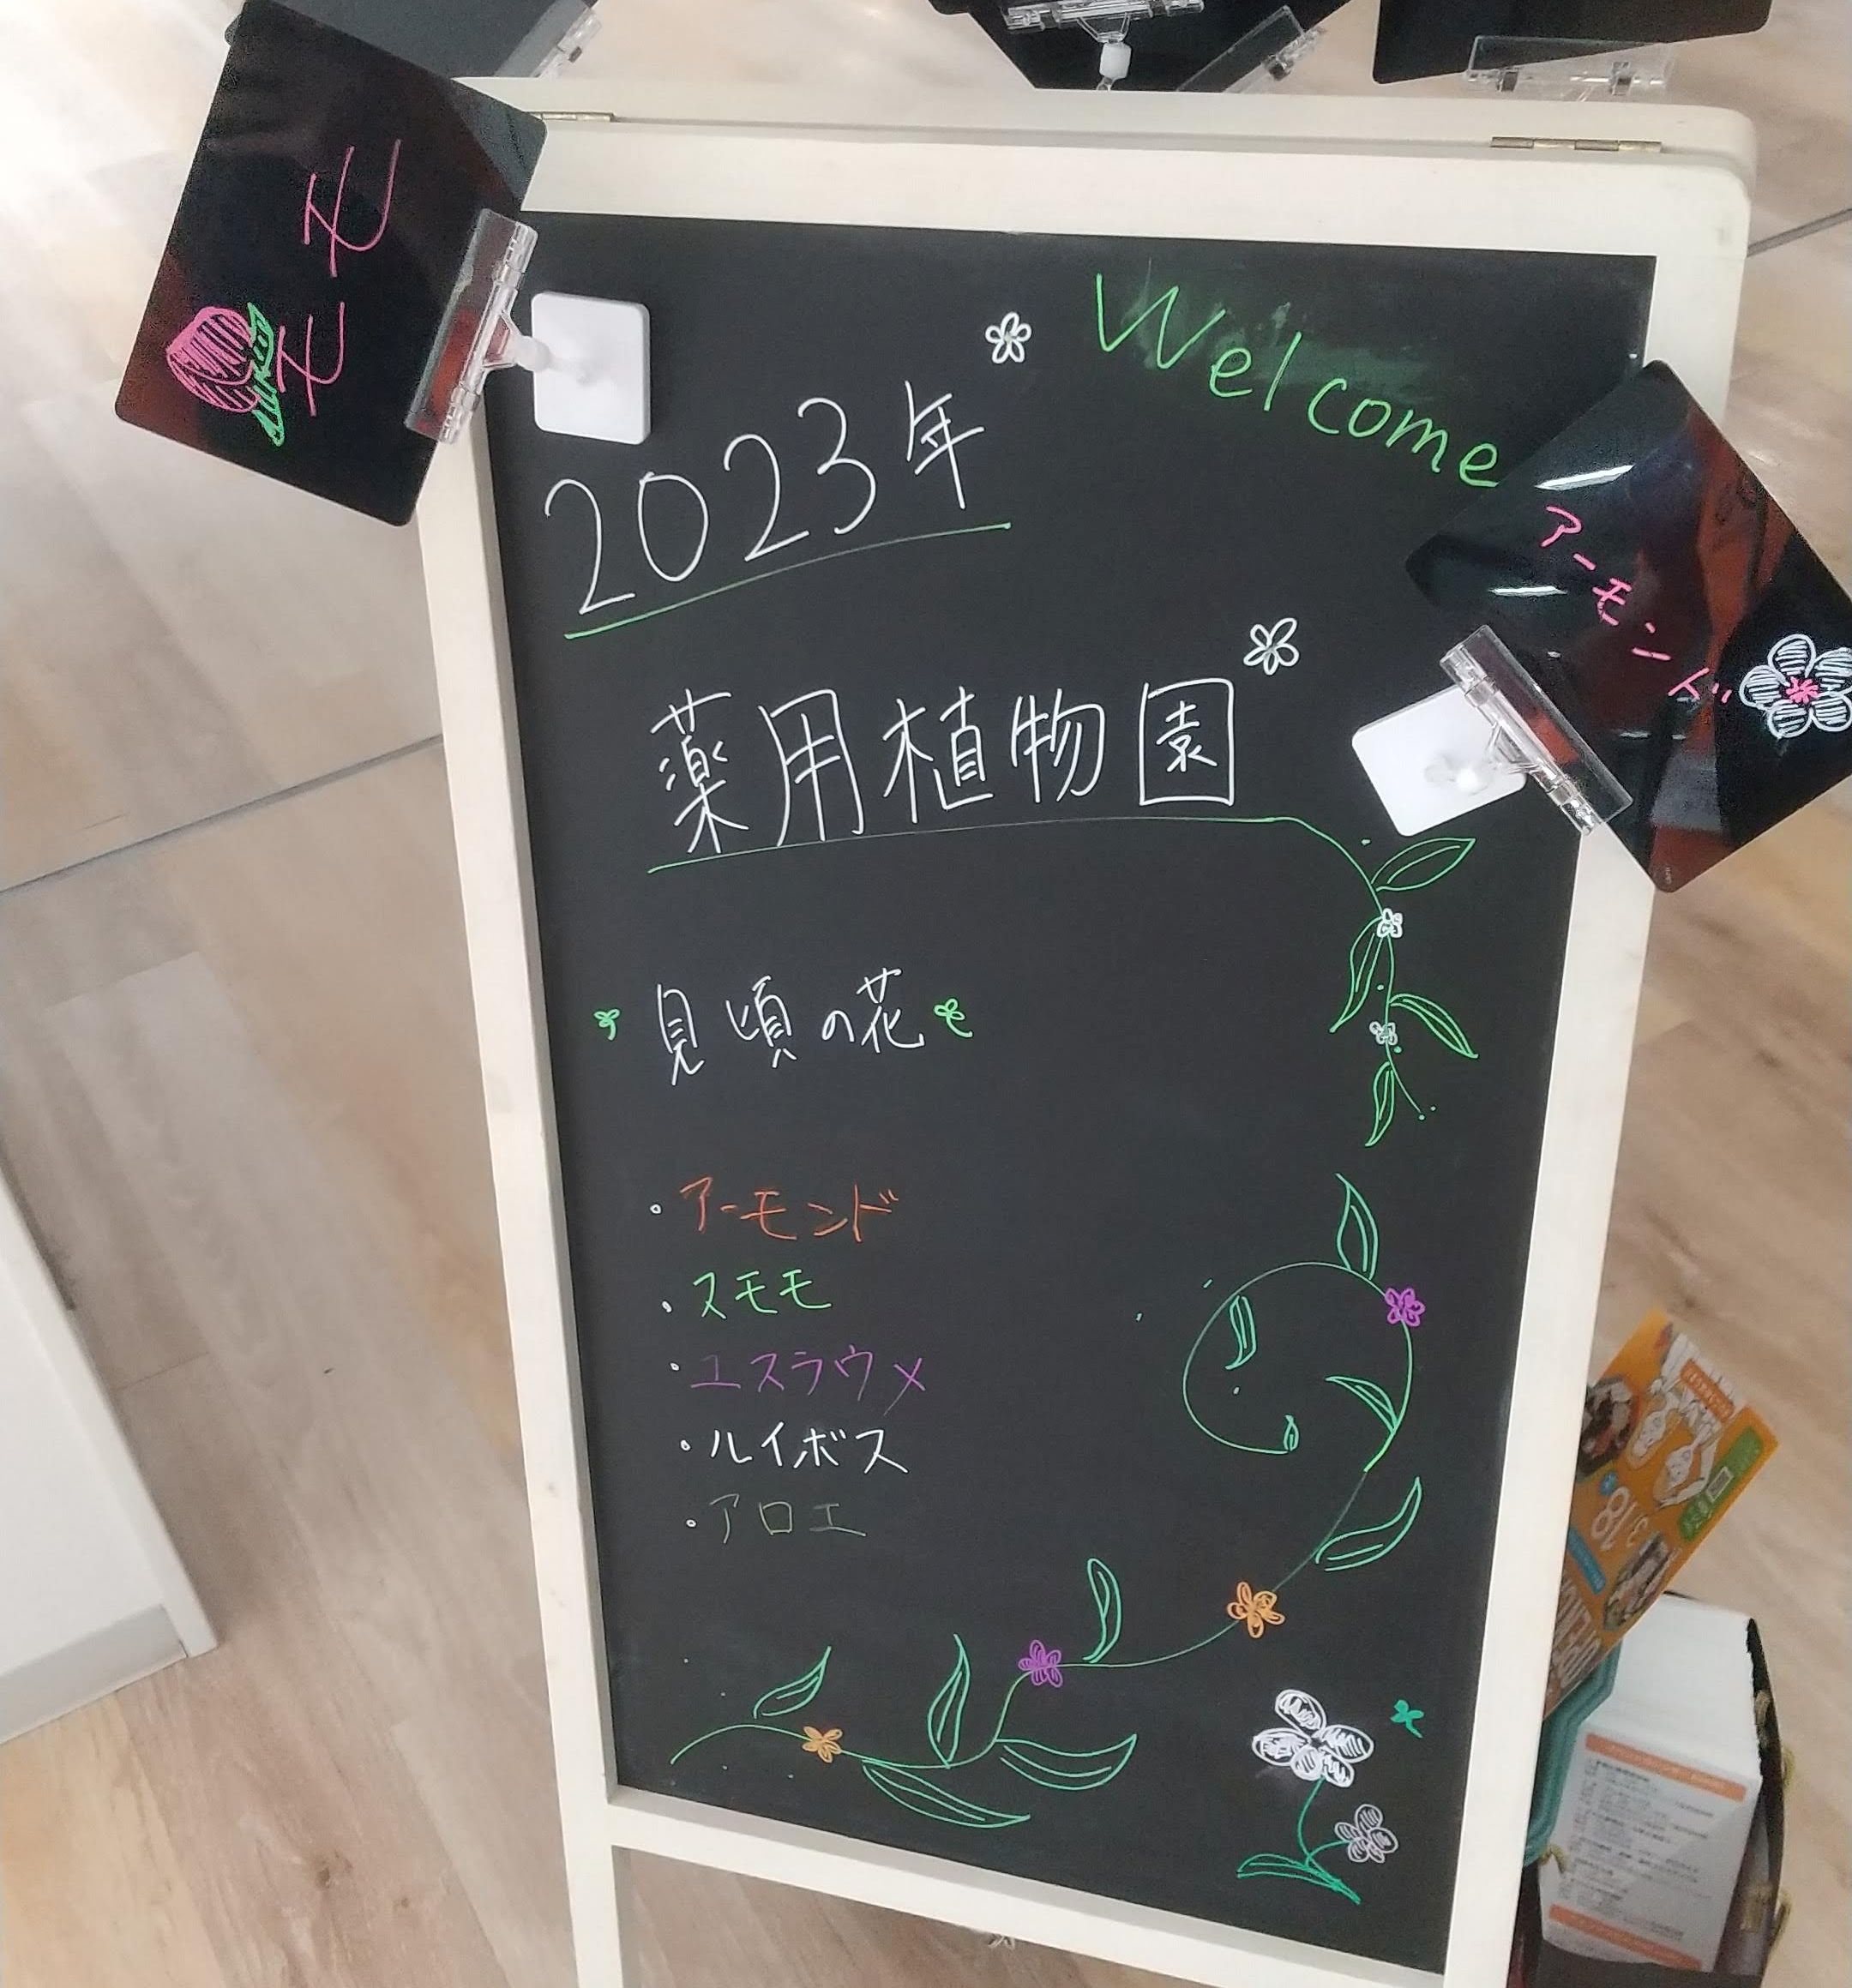 モモ
Welcome
2023年
アーモンド
薬用植物園
見頃の花
・アーモンド
・スモモ
・ユスラウメ
・ルイボス
・アロエ